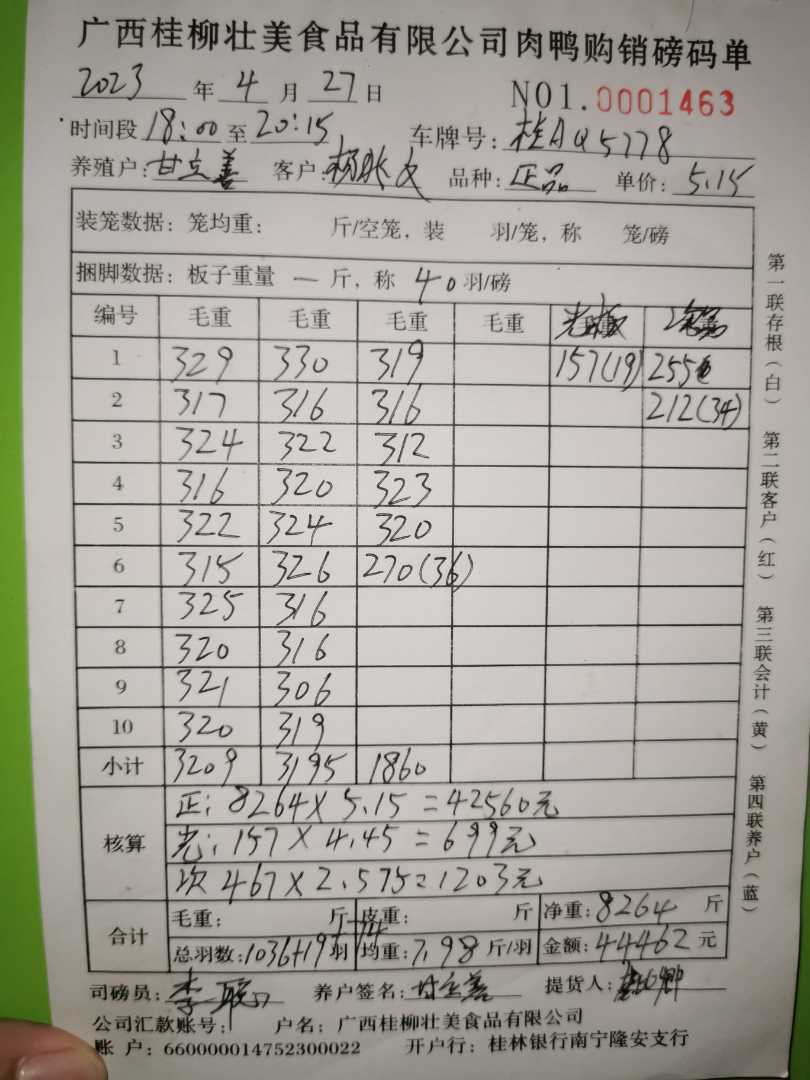 广西桂柳壮美食品有限公司肉鸭购销磅码单
2023 年 4 月 27 日 NO1.0001463
时间段 18:00 至 20:15 车牌号: 桂AQ5778
养殖户: 甘立善 客户: 杨 品种: 正品 单价: 5.15
装笼数据: 笼均重: 斤/空笼, 装 羽/笼, 称 笼/磅
捆脚数据: 板子重量 一 斤, 称 40 羽/磅
编号 毛重 毛重 毛重 毛重
1 329 330 319 157(19) 255
2 317 316 316 212(34)
3 324 322 312
4 316 320 323
5 322 324 320
6 315 326 270(36)
7 325 316
8 320 316
9 321 306
10 320 319
小计 3209 3195 1860
核算
正: 8264×5.15=42560元
光: 157×4.45=699元
次 467×2.575=1203元
合计
毛重: 斤 皮重: 斤 净重: 8264 斤
总羽数: 1036+19 羽 均重: 7.98 斤/羽 金额: 44462 元
司磅员: 李 养户签名: 甘立善 提货人:
公司汇款账号: 户名: 广西桂柳壮美食品有限公司
账 户: 660000014752300022 开户行: 桂林银行南宁隆安支行
第一联存根(白) 第二联客户(红) 第三联会计(黄) 第四联养户(蓝)